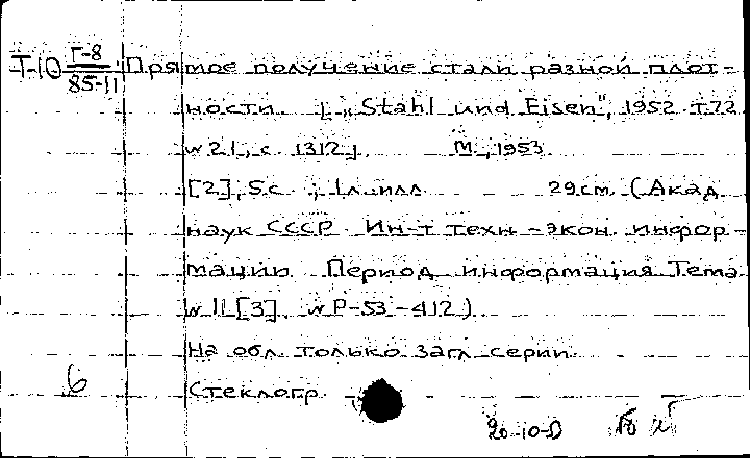 Т-10 Г-8/85-11 Прямое получение стали разной плот-
ности. [„Stahl und Eisen", 1952 т.72
№ 21, с. 1312]. М., 1953
[2], 5 с. ; 1 л. илл. 29 см. (Акад.
наук СССР. Ин-т техн.-экон. инфор-
мации. Период. информация. Тема
№ 11 [3]. № Р-53-412)
На обл. только загл. серии.
6 Стеклогр.